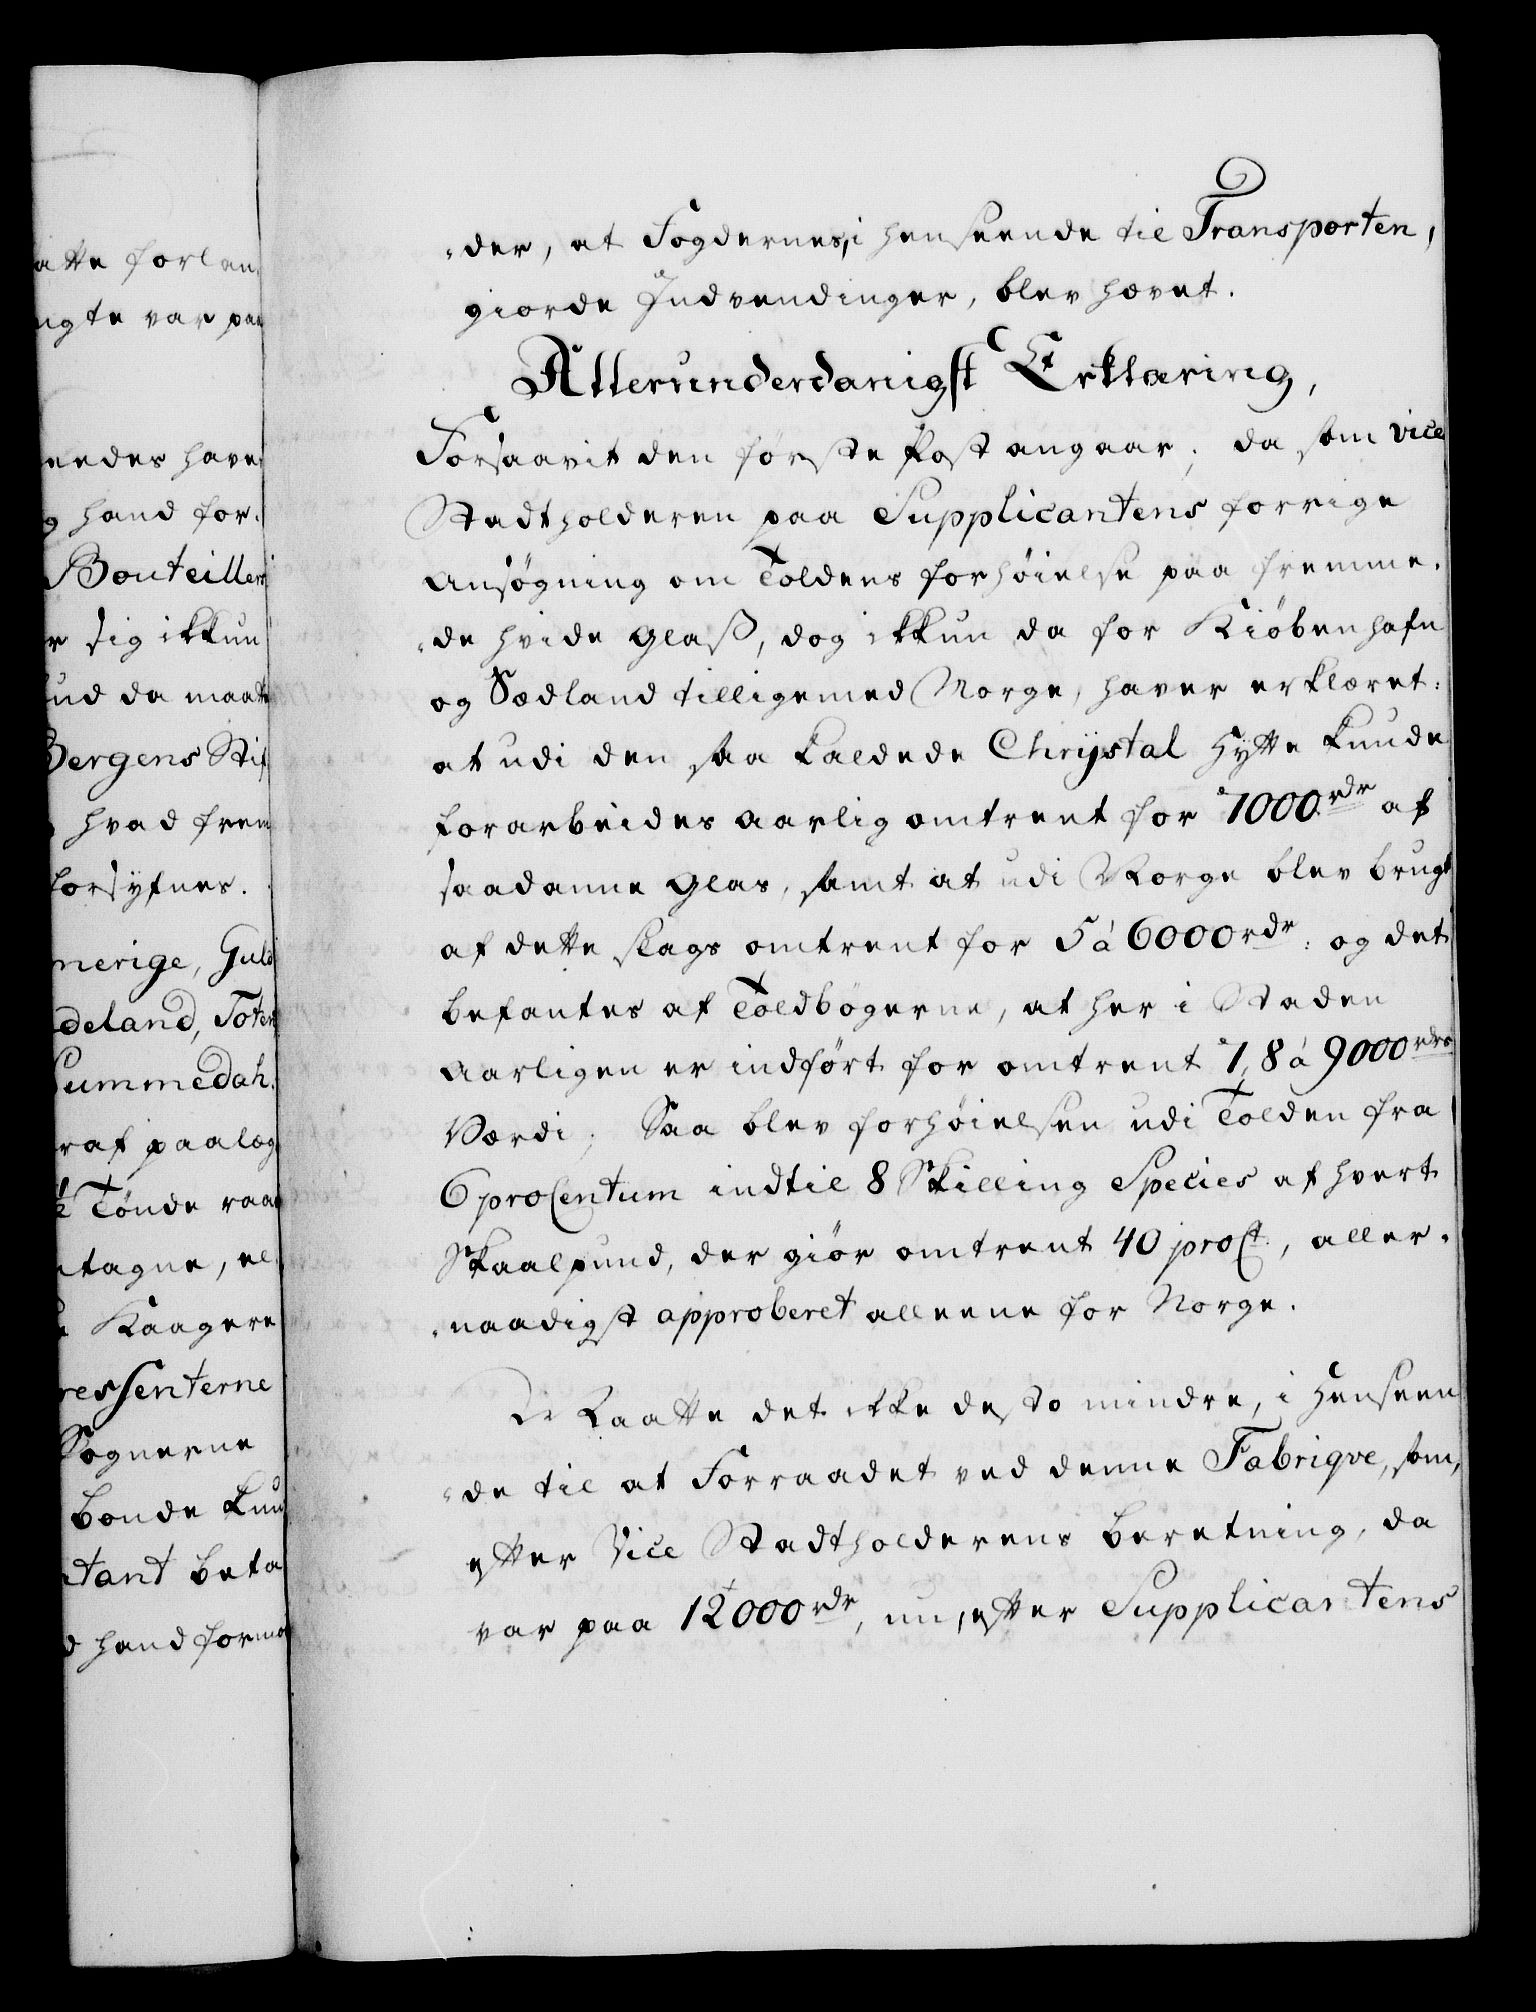 atte forlen¬
ngte var paa
eedes have
g hand for¬
Bouteiller
r sig ikkun
ud da maatt
Bergens Stif
hvad frem
forsÿnes.
merige, Guld
deland, Toten
Nummedah¬
raf paalæg
½ Tønde raa
tagne, el¬
Kaagere
ressenterne
Sognerne
bonde kun
tant beta
d hand formo
„der, at Fogdernes, i henseende til Transporten,
giorde Indvendinger, blev hævet.
Allerunderdanigst Erklæring,
Forsaavit den første Post angaar; da som vice
Stadtholderen paa Supplicantens forrige
ansøgning om Toldens forhøielse paa fremme¬
„de hvide Glaß, dog ikkun da for Kiøbenhafn
og Sædland tilligemed Norge, haver erklæret:
at udi den saa kaldede Chrÿstal Hytte kunde
forarbeides aarlig omtrent for 7000 rdr af
saadanne Glas, samt at udi Norge blev brugt
af dette slags omtrent for 5 á 6000 rdr: og det
befantes af Toldbøgerne, at her i Staden
aarligen er indført for omtrent 7, 8 á 9000 rdrs
Værdi; Saa blev forhøielsen udi Tolden fra
6 proCentum indtil 8 Skilling Species af hvert
Skaalpund, der giør omtrent 40 proCt., aller¬
„naadigst approberet alleene for Norge.
Vi Laatte det ikke desto mindre, i Henseen
„de til at Forraadet ved denne Fabriqve, som,
efter Vice Stadtholderens beretning, da
var paa 12000 rdr, nu, efter Supplicantens